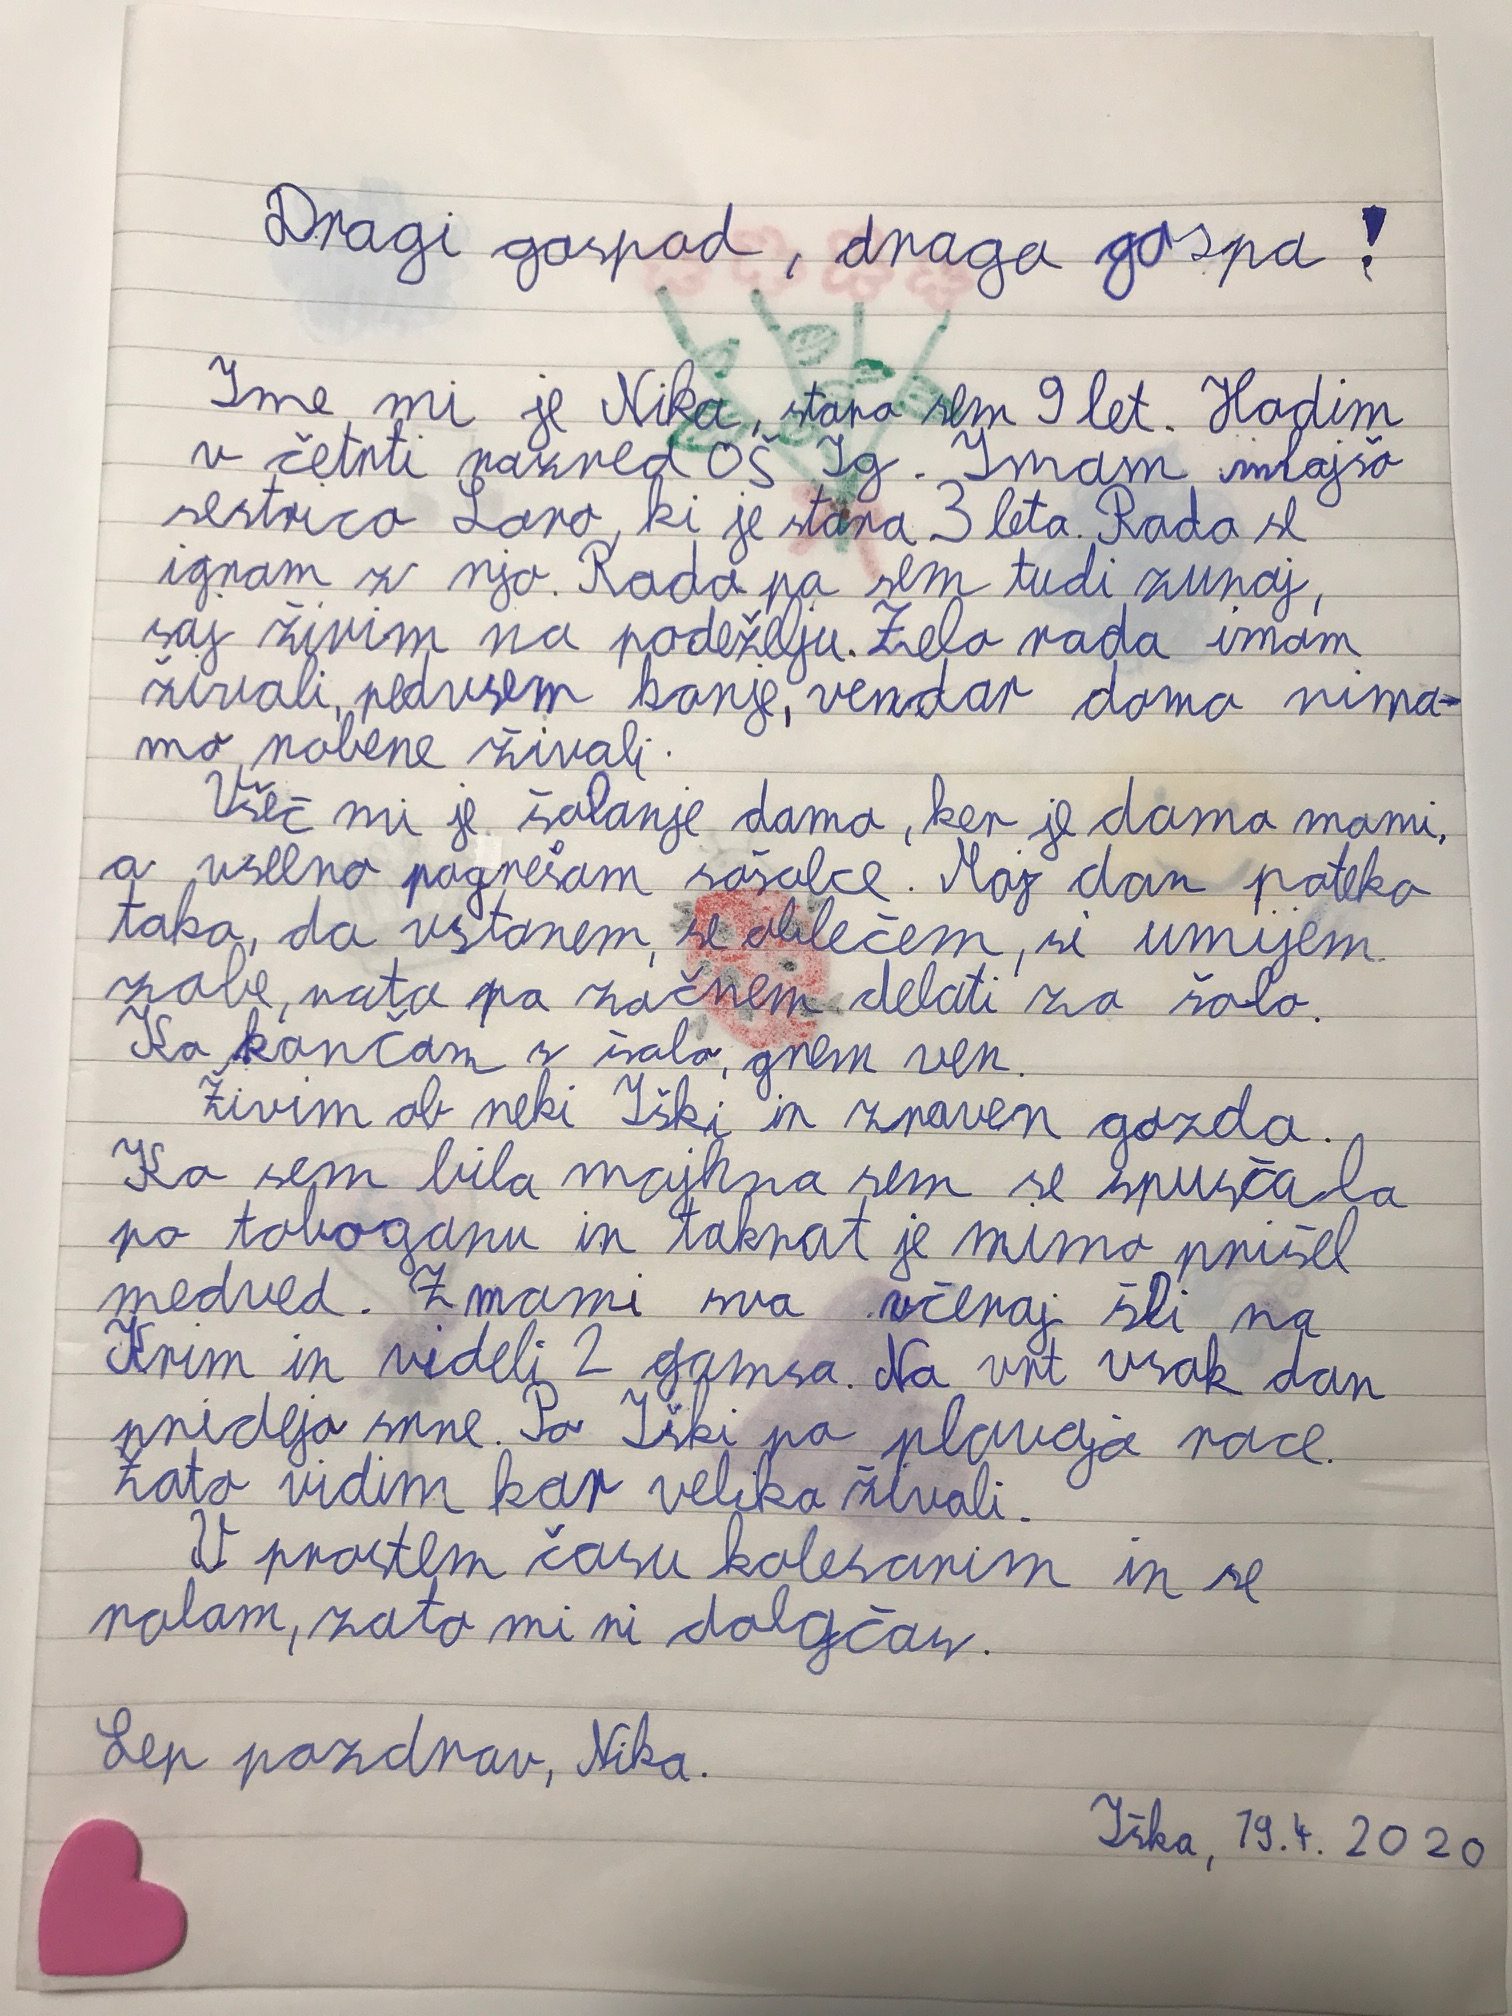 Dragi gospod, draga gospa!
Ime mi je Nika, stara sem 9 let. Hodim
v četrti razred OŠ Ig. Imam mlajšo
sestrico Laro, ki je stara 3 leta. Rada se
igram z njo. Rada pa sem tudi zunaj,
saj živim na podeželju. Zelo rada imam
živali, predvsem konje, vendar doma nima-
mo nobene živali.
Všeč mi je šolanje doma, ker je doma mami,
a vseeno pogrešam sošolce. Moj dan poteka
tako, da vstanem, se oblečem, si umijem
zobe, nato pa začnem delati za šolo.
Ko končam s šolo, grem ven.
Živim ob reki Iški in zraven gozda.
Ko sem bila majhna sem se spuščala
po toboganu in takrat je mimo prišel
medved. Z mami sva včeraj šli na
Krim in videli 2 gamsa. Na vrt vsak dan
pridejo srne. Po Iški pa plavajo race.
Zato vidim kar veliko živali.
V prostem času kolesarim in se
rolam, zato mi ni dolgčas.
Lep pozdrav, Nika.
Iška, 19.4.2020